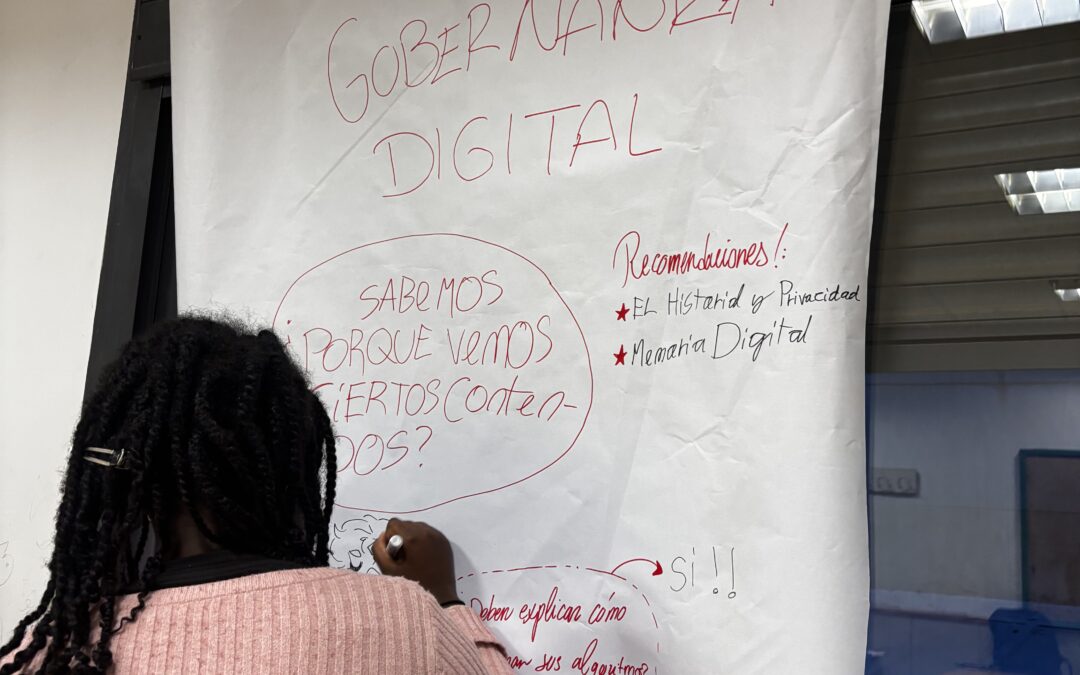 GOBERNANZA
DIGITAL
SABEMOS
¿PORQUE VEMOS
CIERTOS Conten-
DOS?
Recomendaciones!:
★ EL Historial y Privacidad
★ Memoria Digital
Si!!
Deben explicar cómo
sus algoritmos?